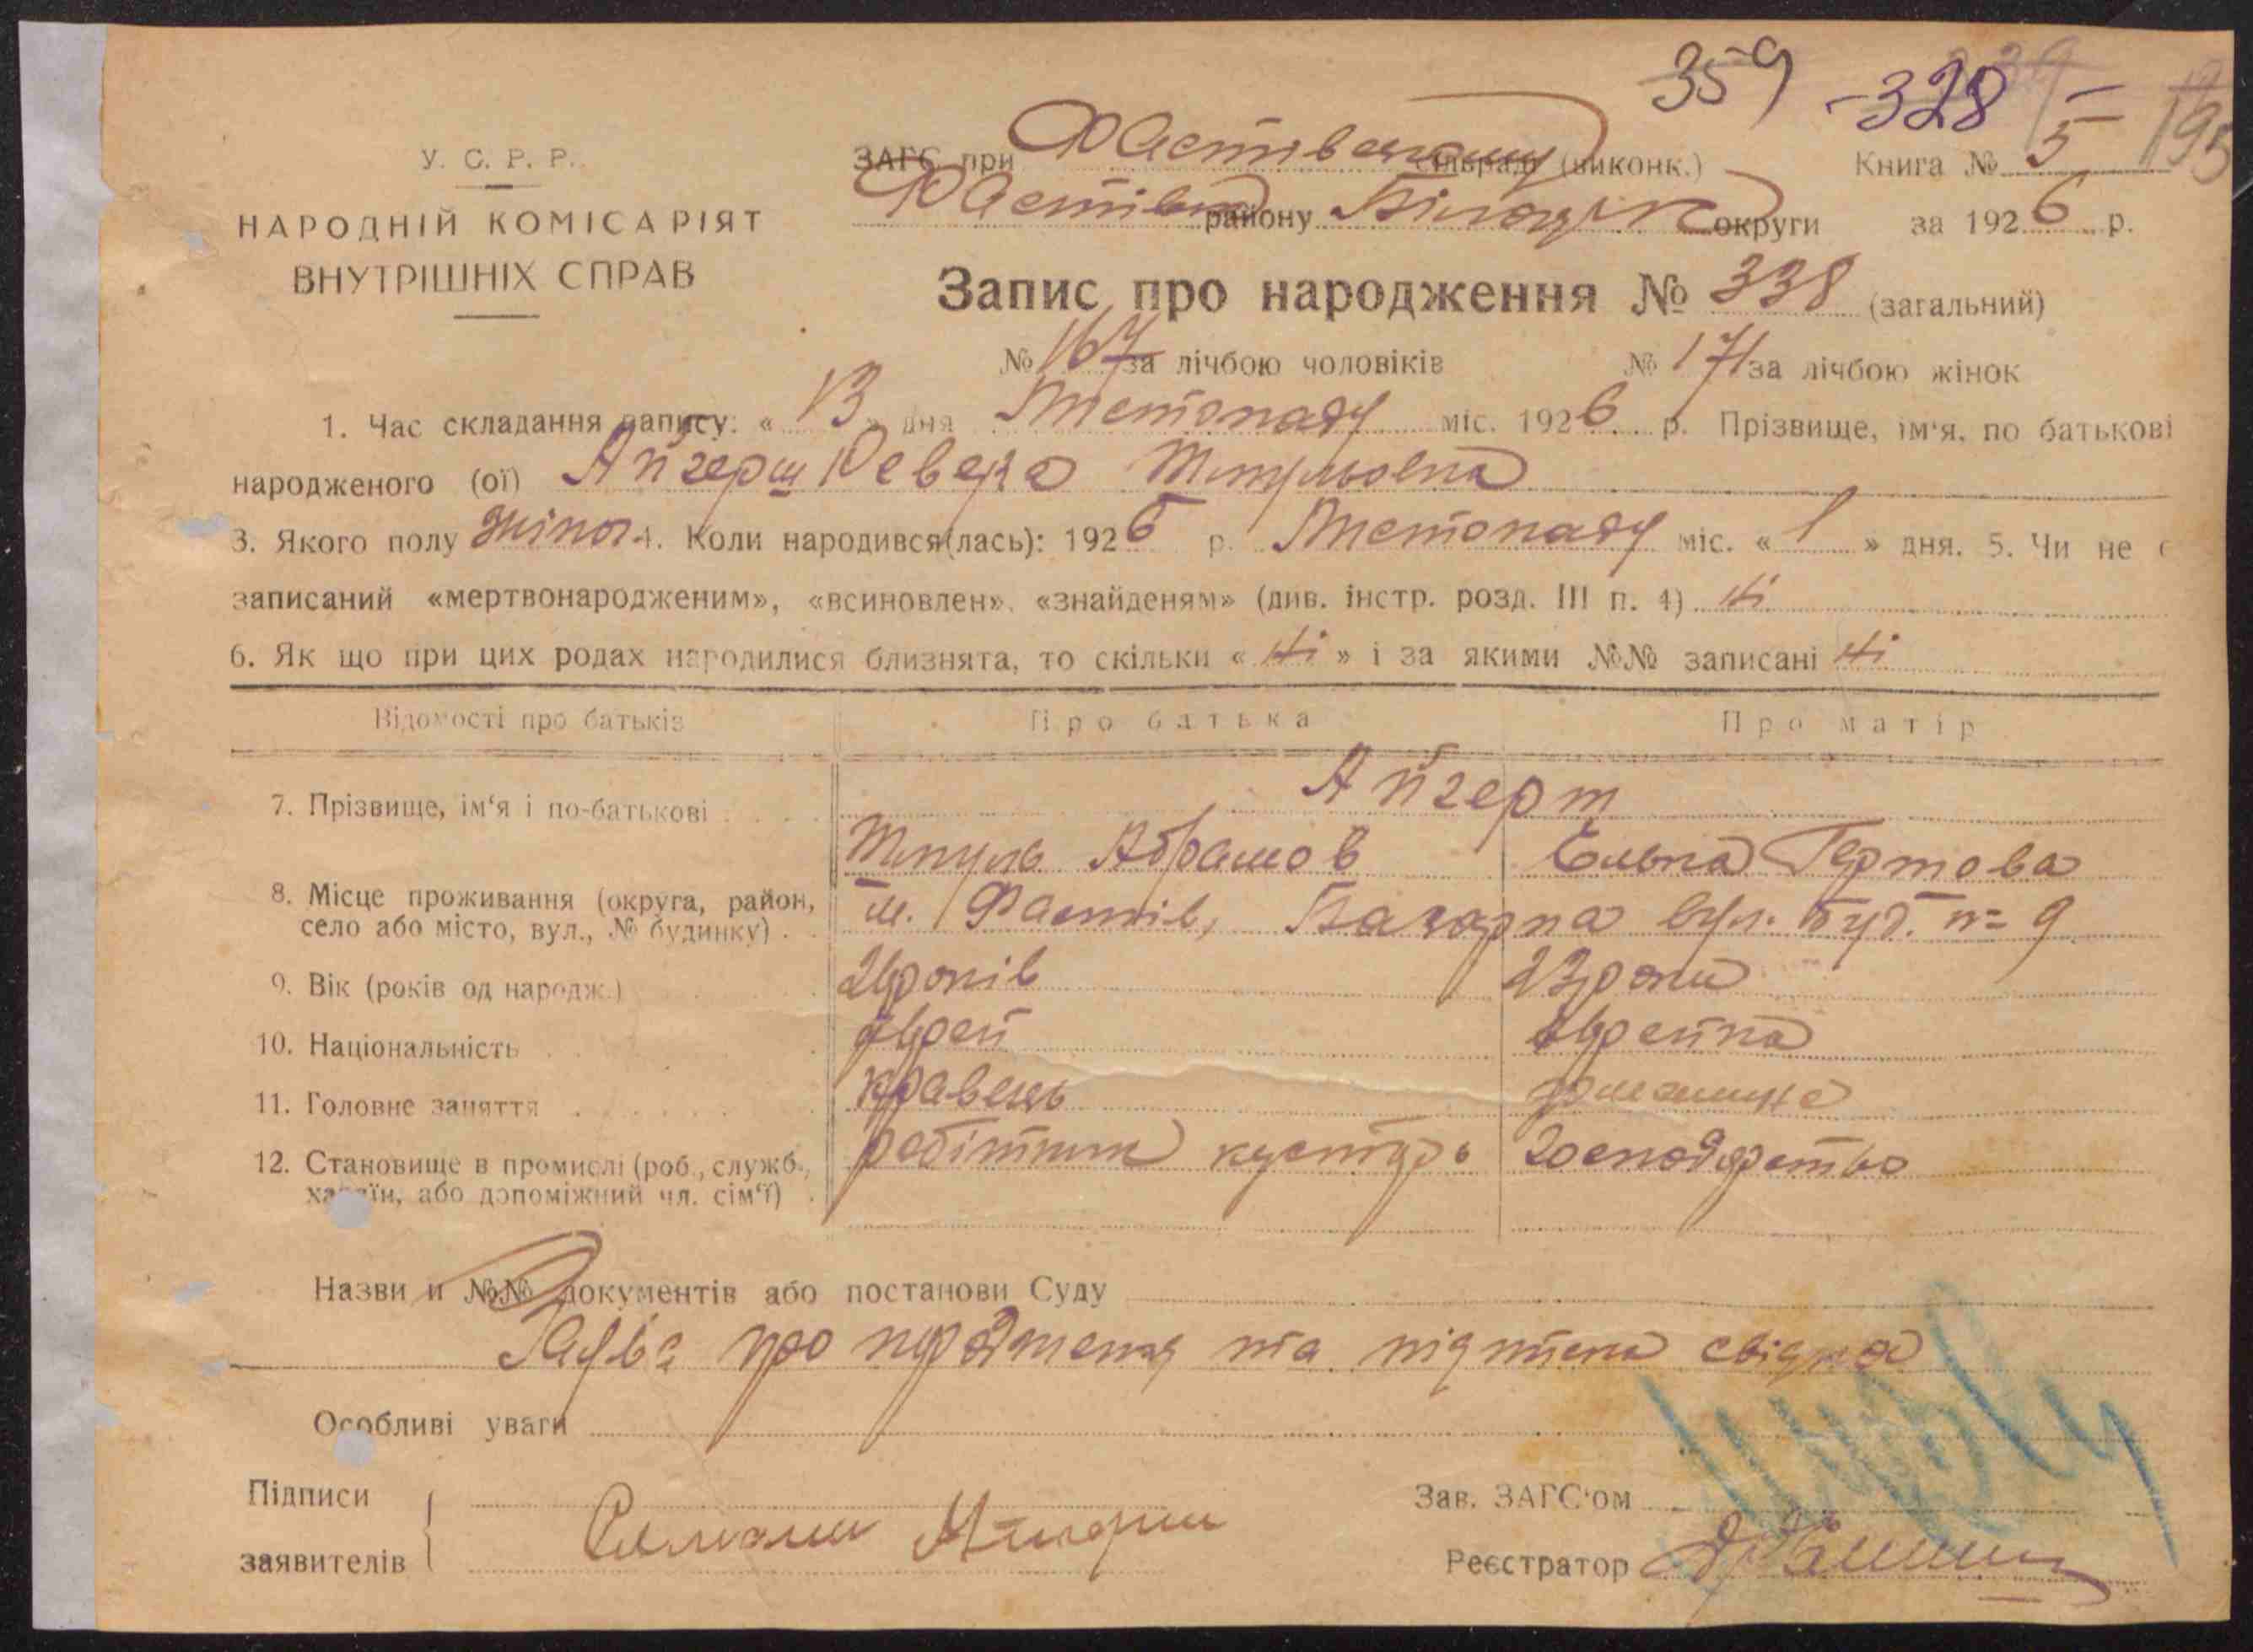 359 -328
У. С. Р. Р.
НАРОДНІЙ КОМІСАРІЯТ
ВНУТРІШНІХ СПРАВ
ЗАГС при Фастівському сільраді (виконк.) Книга № 5
Фастівськ району Білоцерк округи за 1926 р.
Запис про народження № 338 (загальний)
№ 167 за лічбою чоловіків № 171 за лічбою жінок
1. Час складання запису: « 13 » дня Листопаду міс. 1926 р. Прізвище, ім'я, по батькові
народженого (ої) Айзерш Ревека Шмульовна
3. Якого полу жіноч 4. Коли народився(лась): 1926 р. Листопаду міс. « 1 » дня. 5. Чи не є
записаний «мертвонародженим», «всиновлен», «знайденям» (див. інстр. розд. III п. 4) Ні
6. Як що при цих родах народилися близнята, то скільки « Ні » і за якими №№ записані Ні
Відомості про батьків Про батька Про матір
7. Прізвище, ім'я і по-батькові Айзерш
Шмуль Абрамов Елька Гершова
8. Місце проживання (округа, район, село або місто, вул., № будинку) м. Фастів, Базарна вул. буд. № 9
9. Вік (років од народж.) 26 років 23 роки
10. Національність єврей єврейка
11. Головне заняття кравець домашнє
12. Становище в промислі (роб., служб., хазяїн, або допоміжний чл. сім'ї) робітник кустарь господарство
Назви и №№ документів або постанови Суду
Заява про народження та підписи свідків
Особливі уваги
Підписи
заявителів
Зав. ЗАГС'ом
Реєстратор